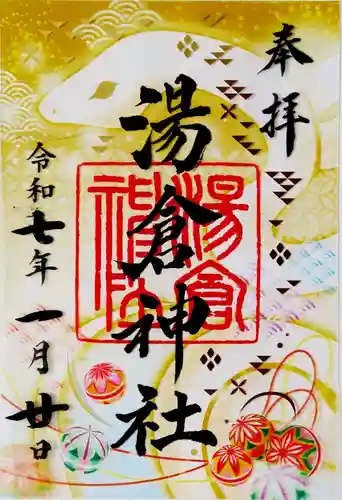 奉拝
湯倉神社
湯倉神社印
令和七年一月廿日